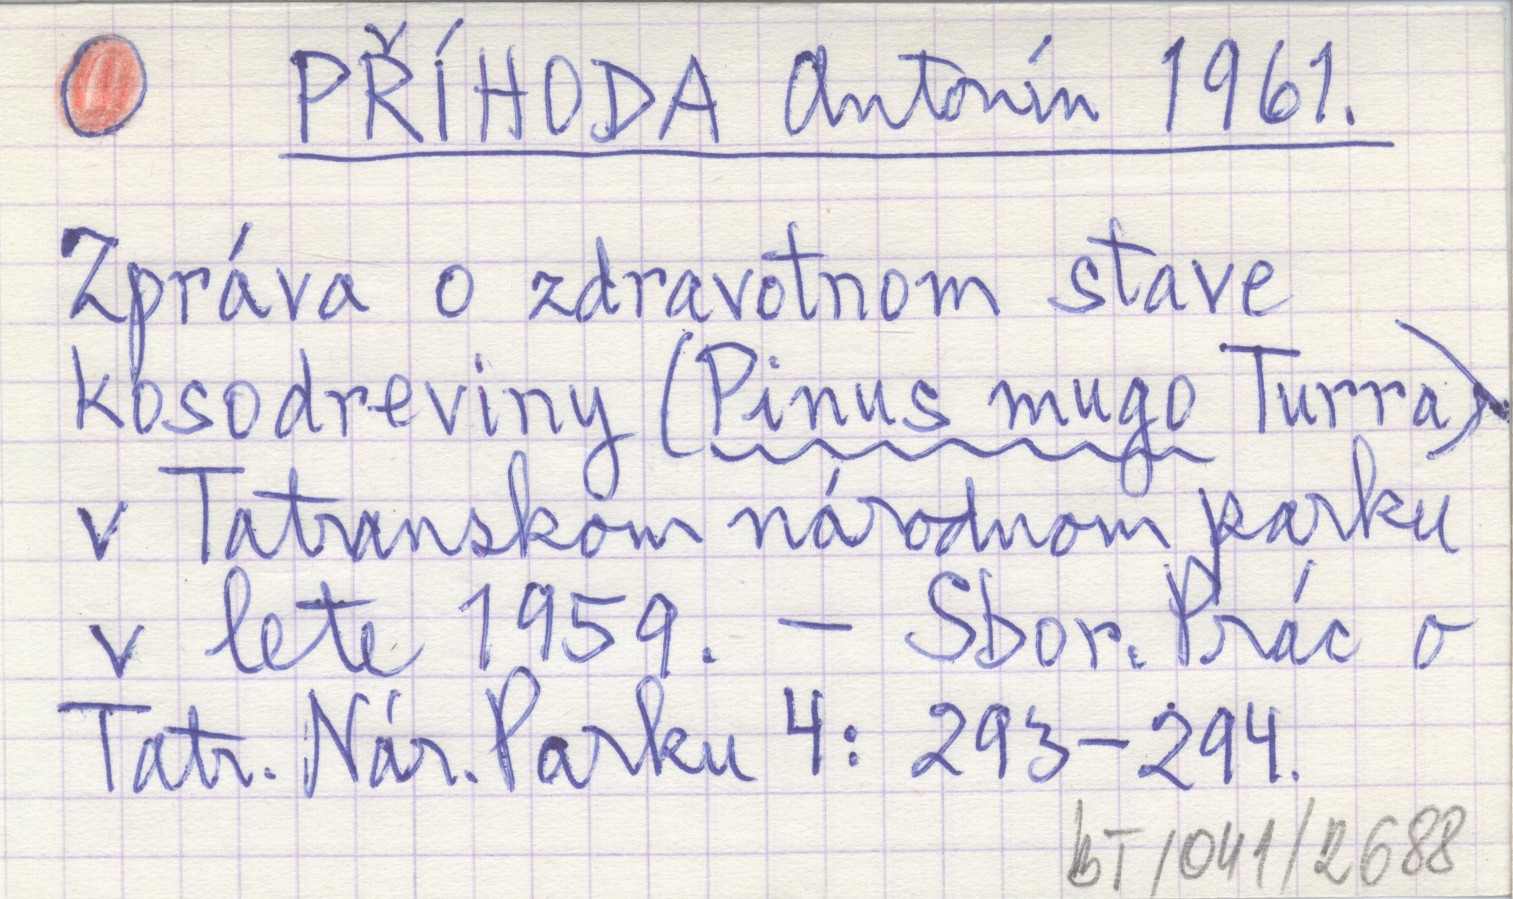 PŘÍHODA Antonín 1961.
Zpráva o zdravotnom stave
kosodreviny (Pinus mugo Turra)
v Tatranskom národnom parku
v lete 1959. — Sbor. Prác o
Tatr. Nár. Parku 4: 293–294.
BT/041/2688